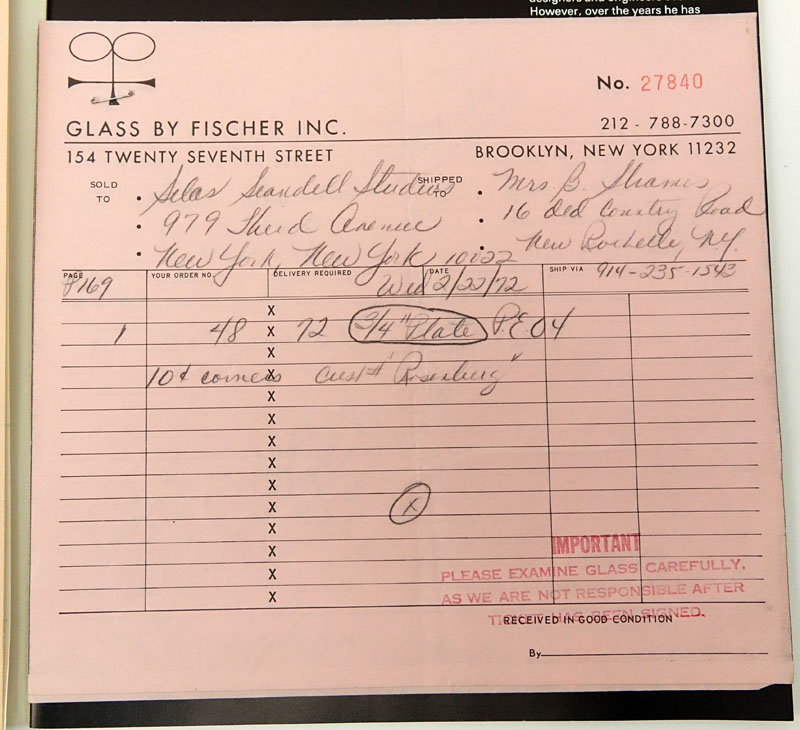 However, over the years he has
No. 27840
GLASS BY FISCHER INC.
212 - 788-7300
154 TWENTY SEVENTH STREET
BROOKLYN, NEW YORK 11232
SOLD TO
Silas Seandell Studios
979 Third Avenue
New York, New York 10022
SHIPPED TO
Mrs B. Shames
16 Old Country Road
New Rochelle, N.Y.
914-235-1543
PAGE
P169
YOUR ORDER NO.
DELIVERY REQUIRED
DATE
Wed 2/23/72
SHIP VIA
X
1 48 X 72 3/4" Plate P.E 04
X
10¢ corners X cust# "Rosenberg"
X
X
X
X
X
X
X
X
X
X
X
IMPORTANT
PLEASE EXAMINE GLASS CAREFULLY,
AS WE ARE NOT RESPONSIBLE AFTER
TICKET HAS BEEN SIGNED.
RECEIVED IN GOOD CONDITION
By